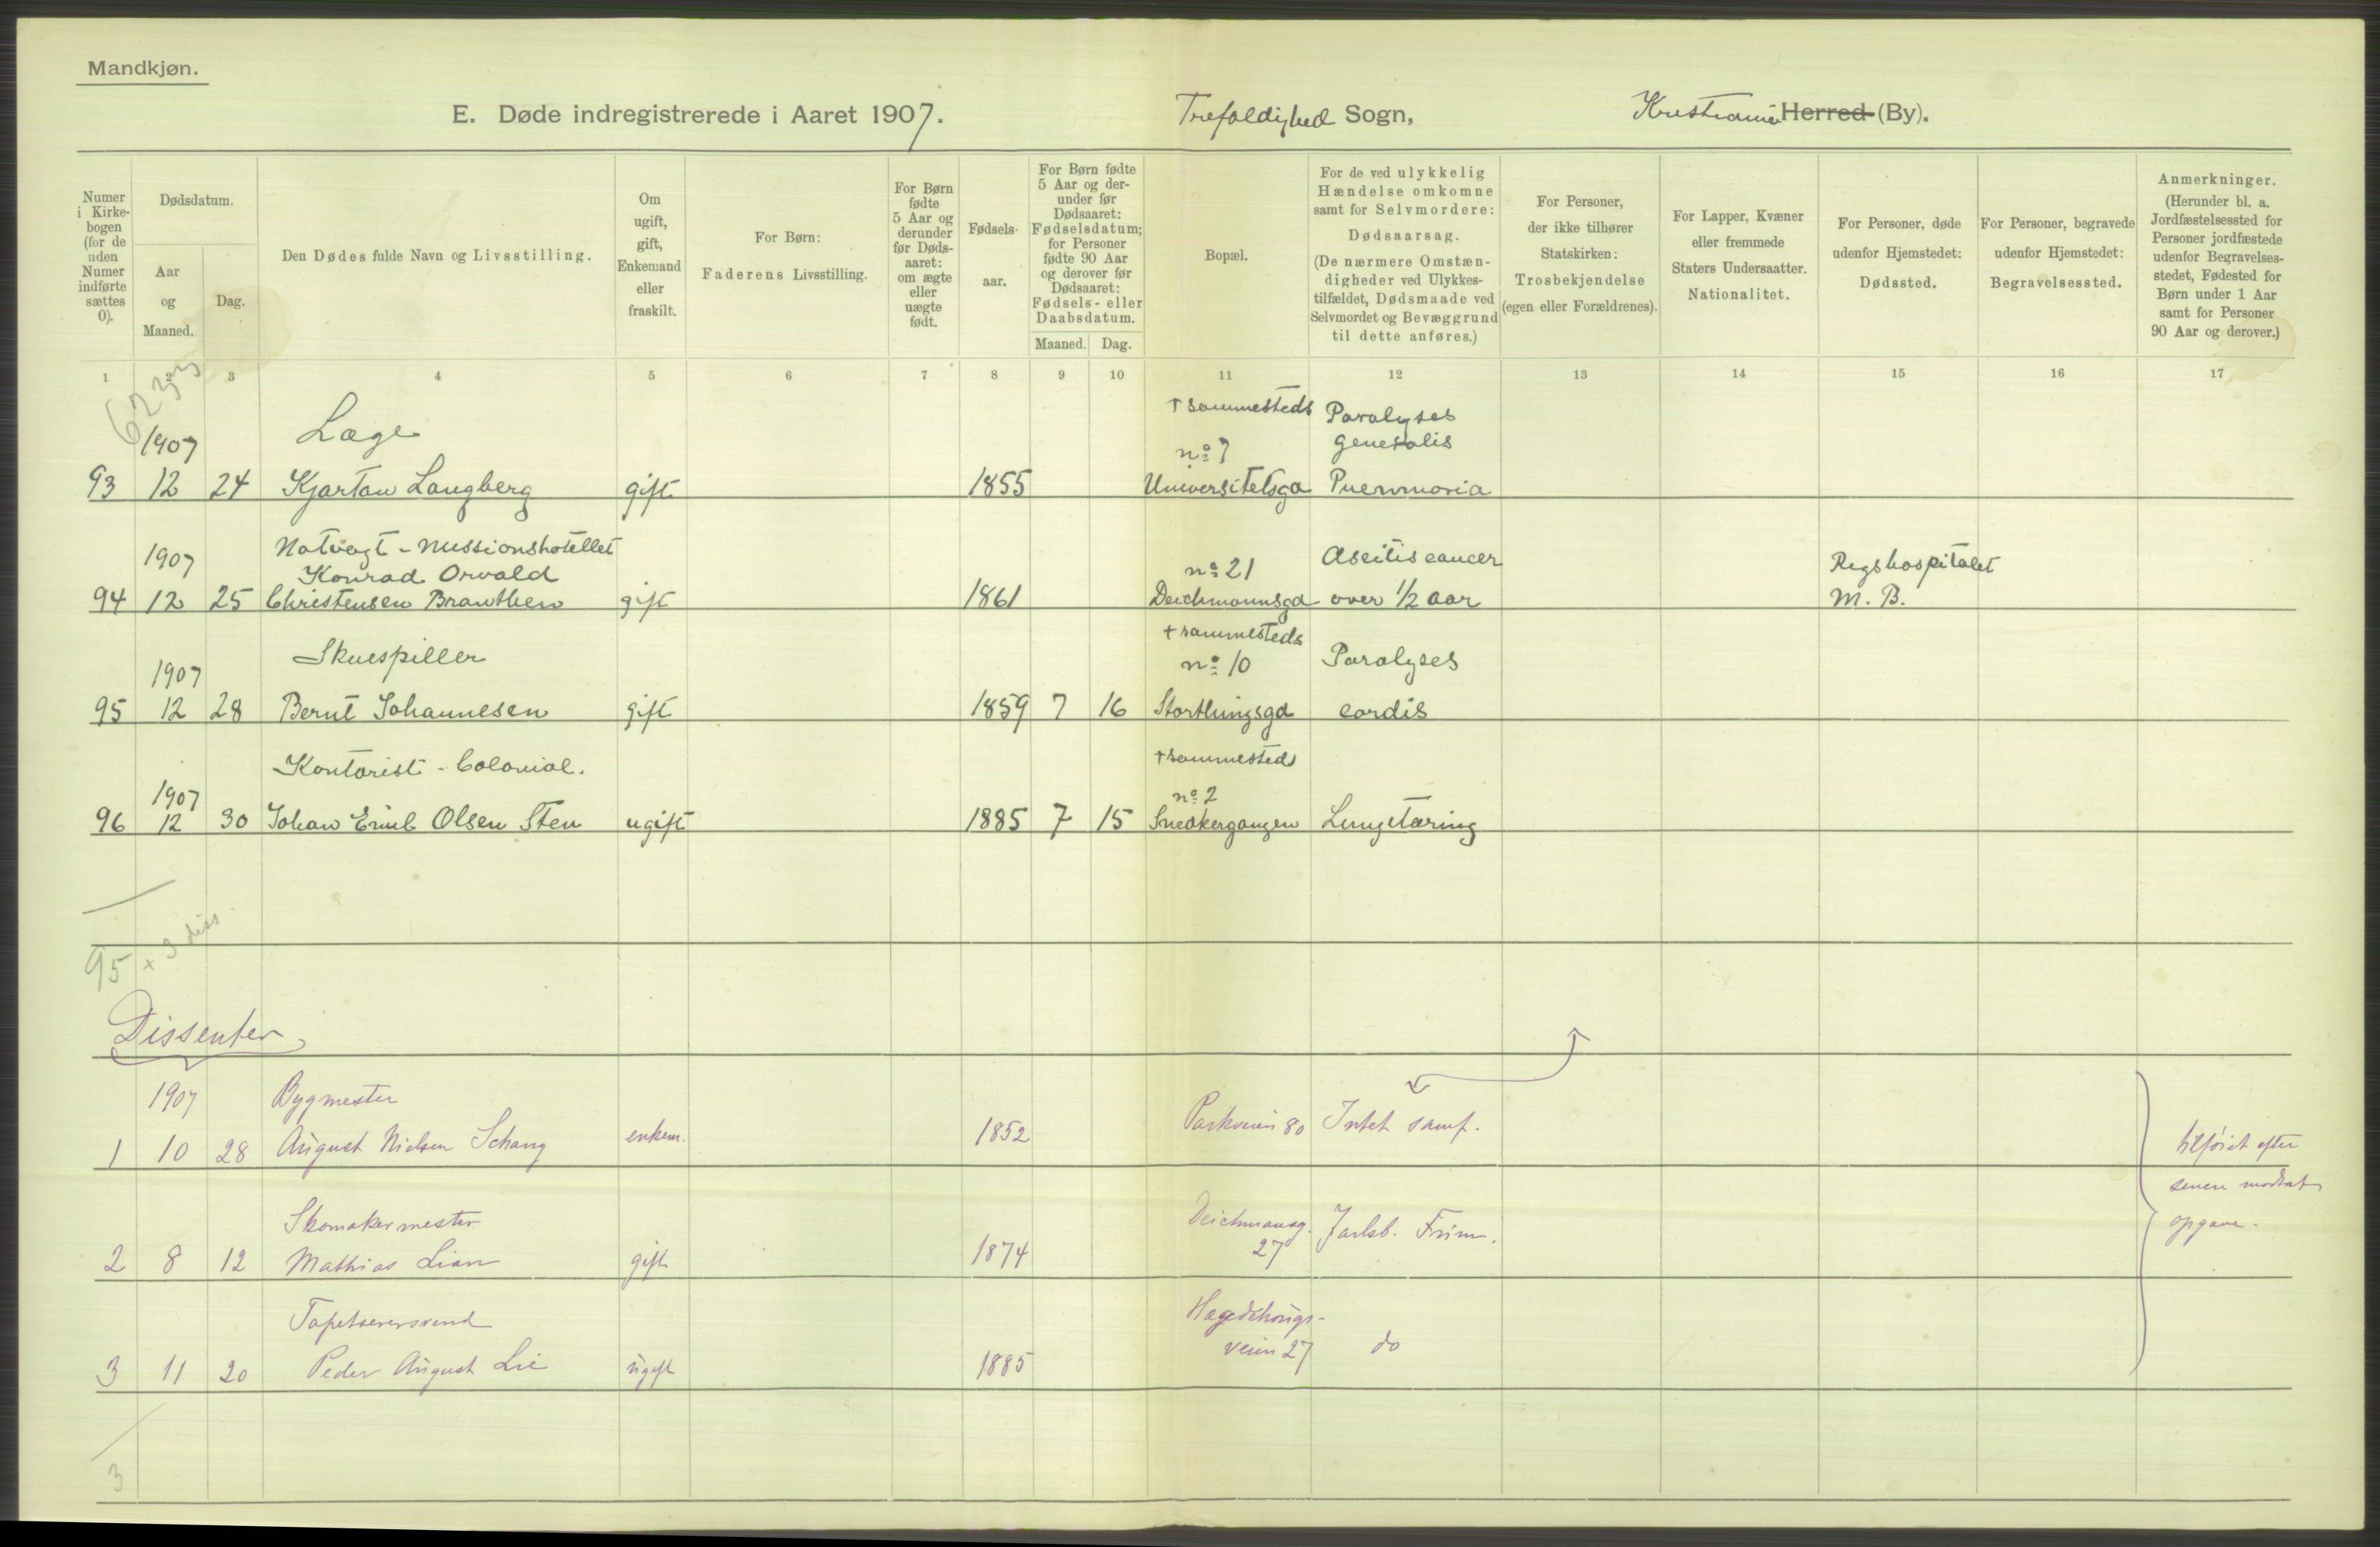 Mandkjøn.
E. Døde indregistrerede i Aaret 1907.
Trefoldighed Sogn,
Kristiania Herred (By).
Numer i Kirkebogen (for de uden Numer indførte sættes 0).
Dødsdatum.
Aar og Maaned.
Dag.
Den Dødes fulde Navn og Livsstilling.
Om ugift, gift, Enkemand eller fraskilt.
For Børn:
Faderens Livsstilling.
For Børn fødte 5 Aar og derunder før Døds-aaret: om ægte eller uægte født.
Fødsels-aar.
For Børn fødte 5 Aar og der-under før Dødsaaret: Fødselsdatum; for Personer fødte 90 Aar og derover før Dødsaaret: Fødsels- eller Daabsdatum.
Maaned. Dag.
Bopæl.
For de ved ulykkelig Hændelse omkomne samt for Selvmordere: Dødsaarsag.
(De nærmere Omstæn-digheder ved Ulykkes-tilfældet, Dødsmaade ved Selvmordet og Bevæggrund til dette anføres.)
For Personer, der ikke tilhører Statskirken: Trosbekjendelse (egen eller Forældrenes).
For Lapper, Kvæner eller fremmede Staters Undersaatter. Nationalitet.
For Personer, døde udenfor Hjemstedet: Dødssted.
For Personer, begravede udenfor Hjemstedet: Begravelsessted.
Anmerkninger.
(Herunder bl. a. Jordfæstelsessted for Personer jordfæstede udenfor Begravelses-stedet, Fødested for Børn under 1 Aar samt for Personer 90 Aar og derover.)
1 2 3 4 5 6 7 8 9 10 11 12 13 14 15 16 17
† sammesteds Paralyses
1907 Læge no 7 generalis
93 12 24 Kjartan Langberg gift 1855 Universitetsga Pnevmonia
1907 Natvagt - Missionshotellet
Konrad Orvald no 21 Ascitis cancer Rigshospitalet
94 12 25 Christensen Branthen gift 1861 Deichmannsgd over 1/2 aar M. B.
† sammesteds
1907 Skuespiller no 10 Paralyses
95 12 28 Bernt Johannesen gift 1859 7 16 Storthingsgd cordis
† sammesteds
1907 Kontorist - Colonial. no 2
96 12 30 Johan Emil Olsen Sten ugift 1885 7 15 Snedkergangen Lungetæring
95 + 3 diss.
Dissenter
1907 Bygmester
1 10 28 August Nielsen Schang enkem. 1852 Parkveien 80 Intet samf.
tilføiet efter
senere modtat
opgave.
Skomakermester
2 8 12 Mathias Lian gift 1874 Deichmansg. 27 Jarlsb. Frim.
Tapetserersvend
3 11 20 Peder August Lie ugift 1885 Hegdehaugs-
veien 27 do
3